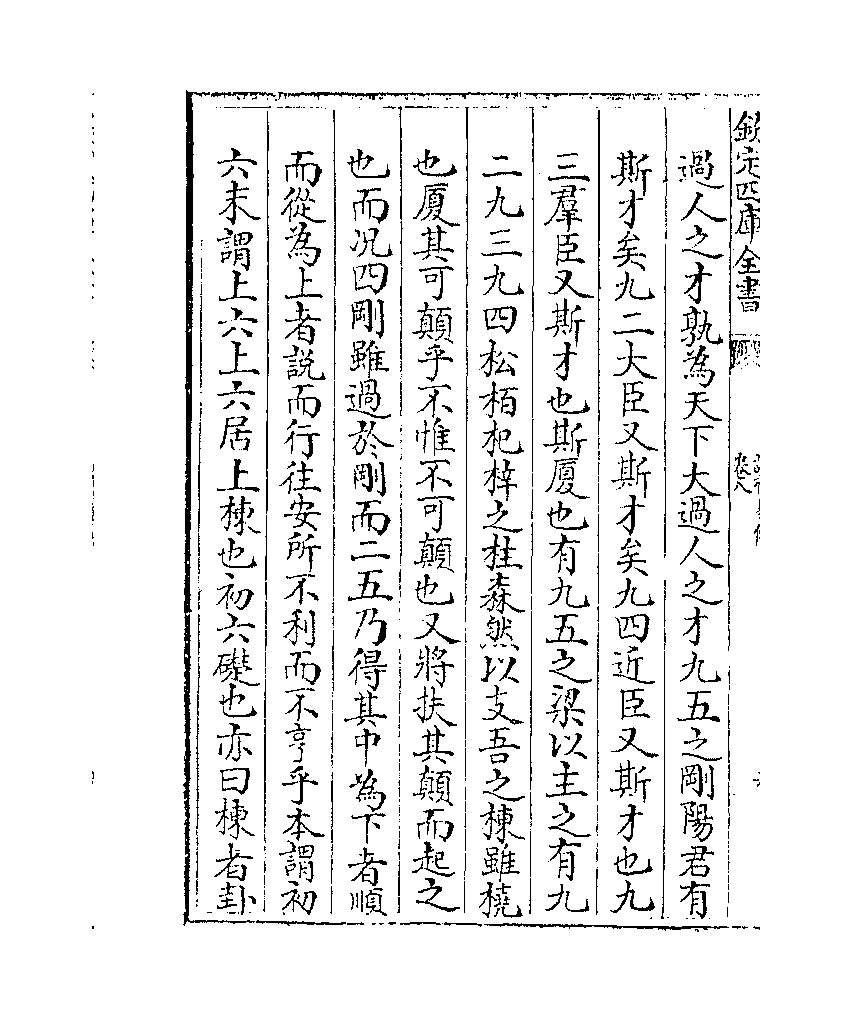 欽定四庫全書
卷八
過人之才孰為天下大過人之才九五之剛陽君有
斯才矣九二大臣又斯才矣九四近臣又斯才也九
三羣臣又斯才也斯厦也有九五之梁以主之有九
二九三九四松栢杞梓之柱森然以支吾之棟雖橈
也厦其可顛乎不惟不可顛也又將扶其顛而起之
也而况四剛雖過於剛而二五乃得其中為下者順
而從為上者説而行往安所不利而不亨乎本謂初
六末謂上六上六居上棟也初六礎也亦曰棟者卦